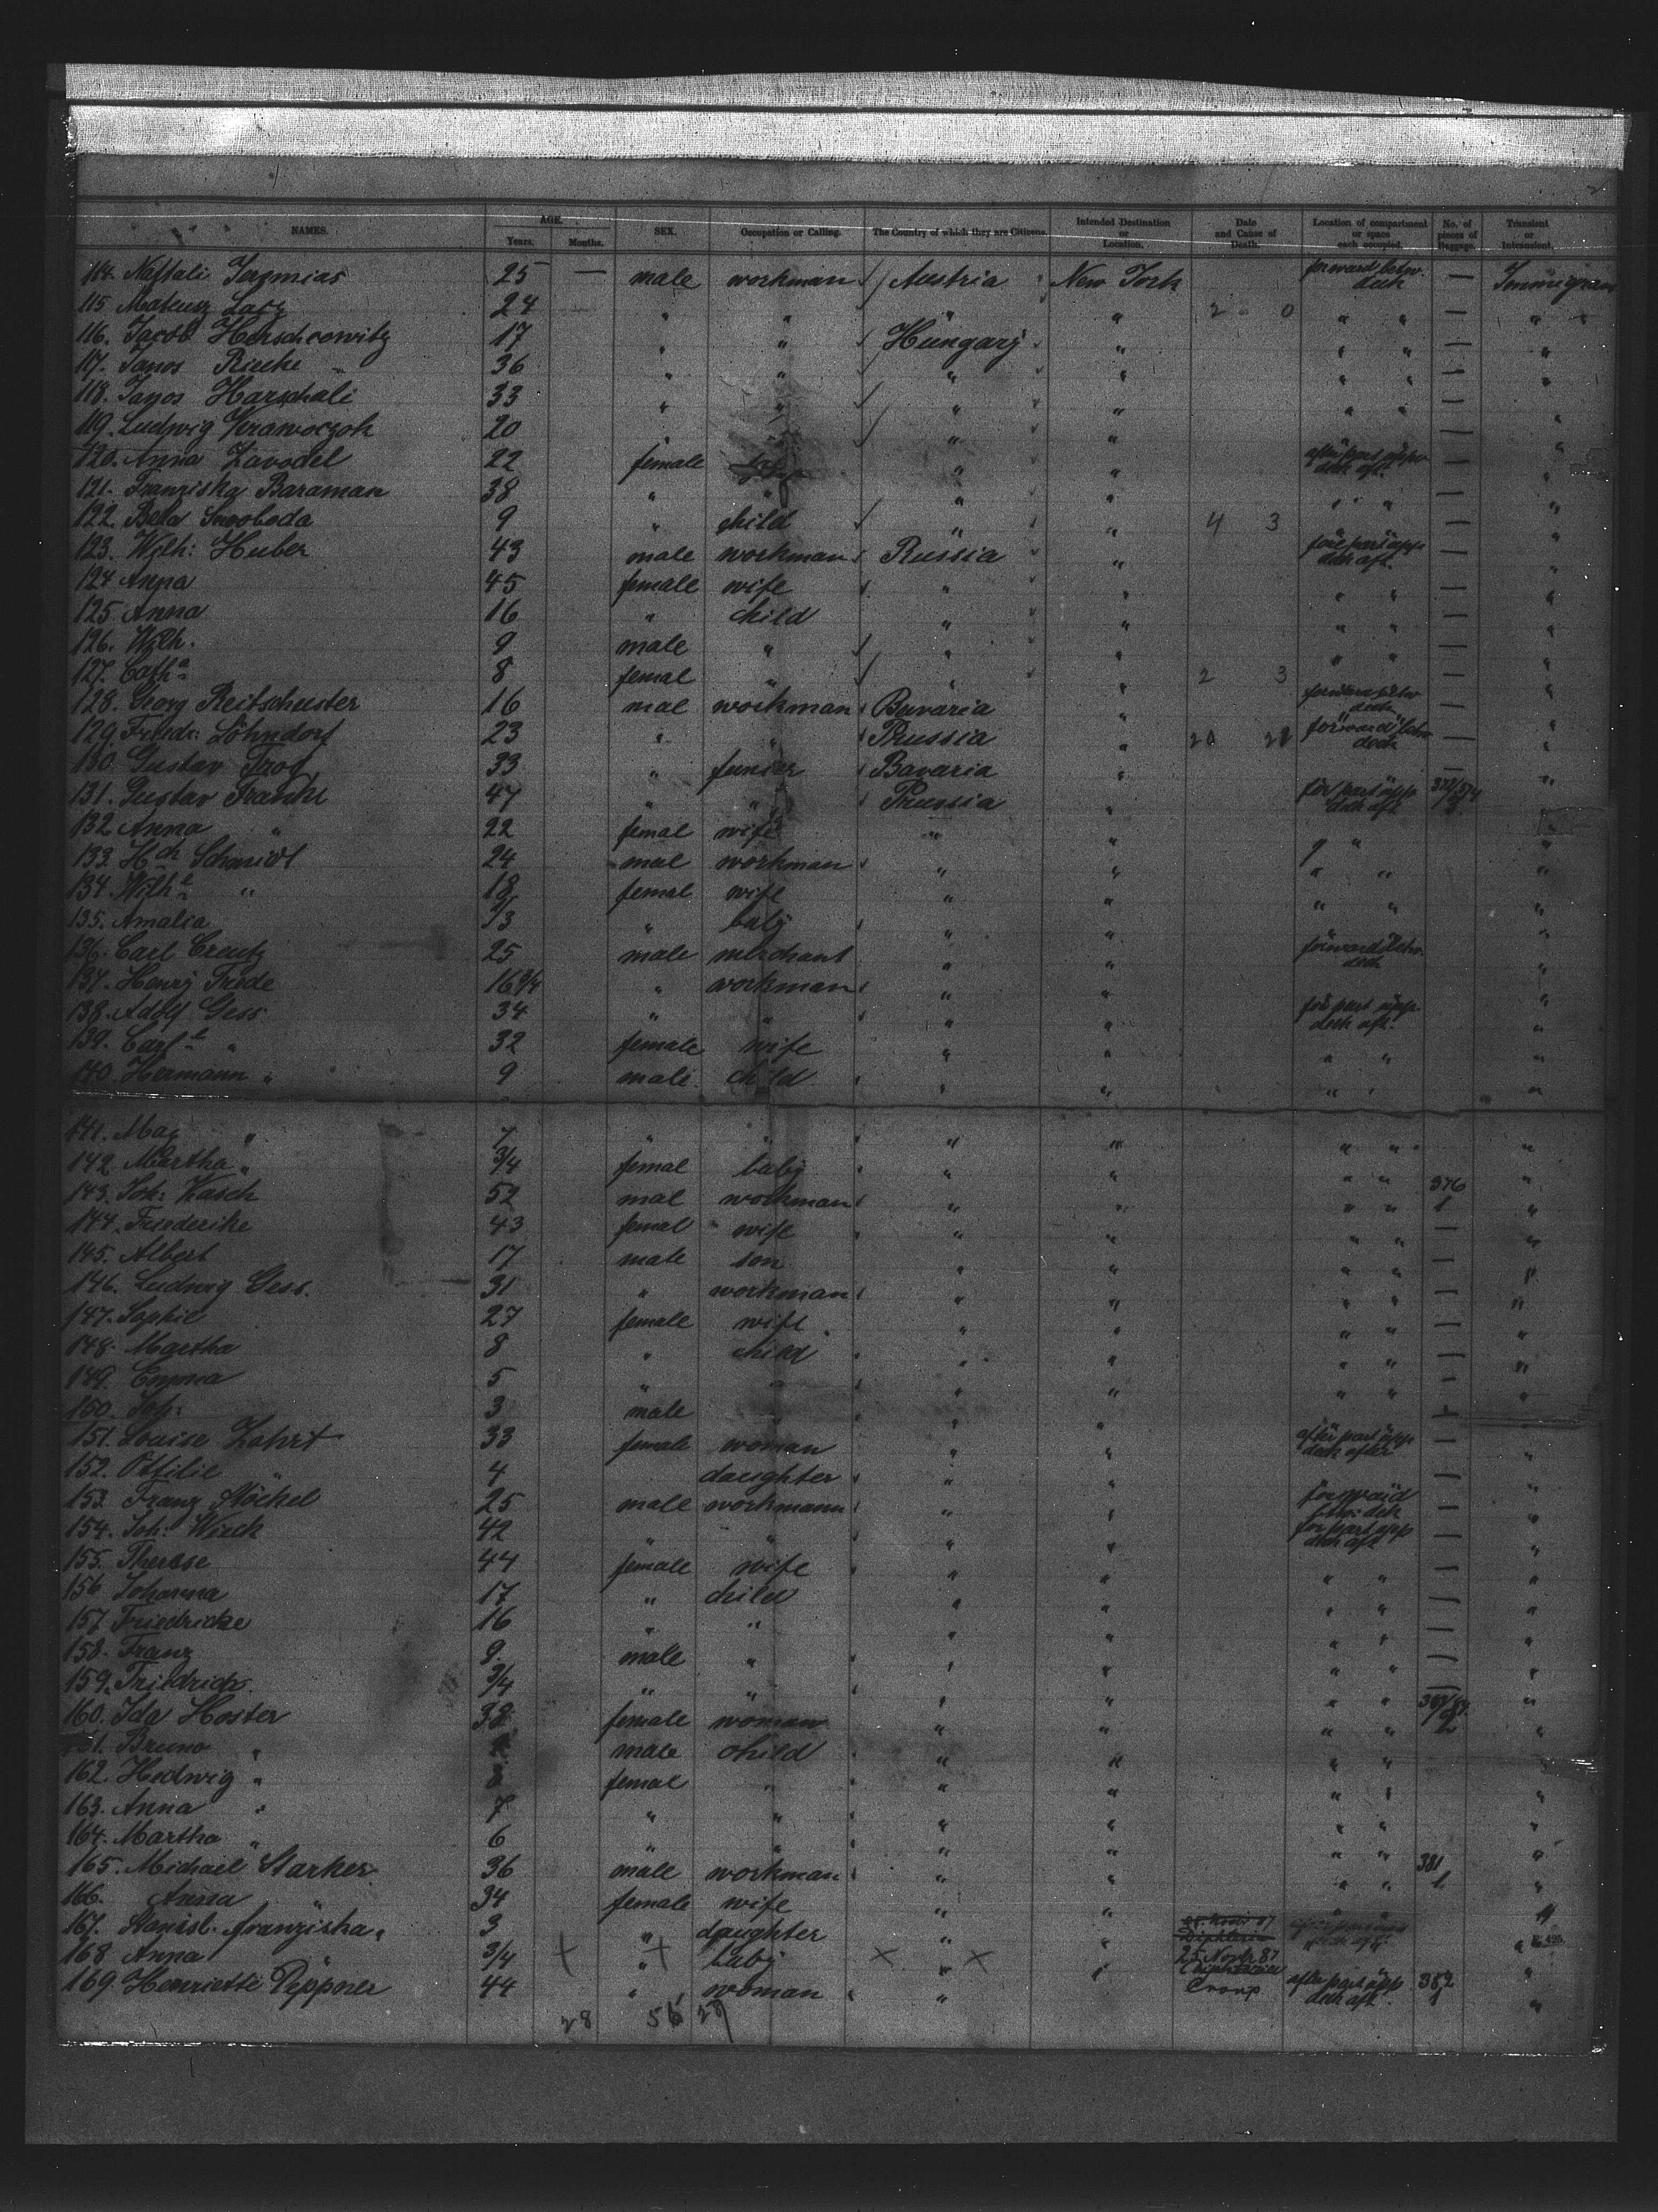 NAMES. AGE. Years. Months. SEX. Occupation or Calling. The Country of which they are Citizens. Intended Destination or Location. Date and Cause of Death. Location of compartment or space each occupied. No. of pieces of Baggage. Transient or Intransient.
114. Naftali 25 — male workman Austria New York forward betw. deck —
115. Mateusz 24 " " " " 2 0 " " — "
116. Jacob Herschcowitz 17 " " Hungary " " " — "
117. Janos 36 " " " " " " — "
118. Janos Harschali 33 " " " " " " — "
119. Ludwig 20 " " " " — "
120. Anna Zavodel 22 female " " after part upper deck aft. — "
121. Franziska Baraman 38 " " " " " " — "
122. Bela Swoboda 9 " child " " 4 3 — "
123. Wilh: Huber 43 male workman Russia " fore part upp deck aft. — "
124. Anna 45 female wife " " " " — "
125. Anna 16 " child " " " " — "
126. Wilh. 9 male " " " " " — "
127. Cath.a 8 femal " " " 2 3 — "
128. Georg Reitschuster 16 mal workman Bavaria " forward betw deck — "
129. Friedr: Löhndorf 23 " " Prussia " 20 forward betw deck — "
130. Gustav 33 " Bavaria " — "
131. Gustav Franke 47 " " Prussia " for part upp deck aft "
132. Anna " 22 femal wife " " " "
133. Hch Schmidt 24 mal workman " " " " "
134. Wilh.e " 18 femal wife " " " " "
135. Amalia " baby " " "
136. Carl Creutz 25 male merchant " " forward betw. deck "
137. Henry Frede 16 3/4 " workman " " "
138. Adolf Gess 34 " " " " for part upp. deck aft. "
139. Carl.e " 32 female wife " " " " "
140. Hermann " 9 male child " " " " "
141. Max " 7 " " " " " " "
142. Martha " 3/4 femal baby " " " " "
143. Joh: Kasch 52 mal workman " " " " 376 1 "
144. Friederike 43 femal wife " " " " — "
145. Albert 17 male son " " " " — "
146. Ludwig Gess. 31 " workman " " " " — "
147. Sophie 27 female wife " " " " — "
148. Martha 8 " child " " " " — "
149. Emma 5 " " " " " " — "
150. Joh: 3 male " " " — "
151. Louise Zahrt 33 female woman " " after part upp deck after — "
152. Ottilie " 4 daughter " " — "
153. Franz Stöckel 25 male workmann " " forward betw: deck — "
154. Joh: Wieck 42 " " " " for part upp deck aft — "
155. Therese 44 female wife " " " " — "
156. Johanna 17 " child " " " " — "
157. Friedricke 16 " " " " " " — "
158. Franz 9 male " " " " " — "
159. Friedrich. 3/4 " " " " " " — "
160. Ida Hoster 38 female woman " " " " 2 "
161. Bruno " male child " " " "
162. Hedwig " 8 femal " " " " " "
163. Anna " 7 " " " " " " "
164. Martha " 6 " " " " " " "
165. Michael Starker 36 male workman " " " " 381 1 "
166. Anna " 34 female wife " " " " "
167. Stanisl. Franziska " 3 " daughter " "
168. Anna 3/4 " baby " " 25 Novb. 87 Croup "
169. Henriette Peppner 44 " woman " after part upp deck aft. 382 1 "
28 56 29